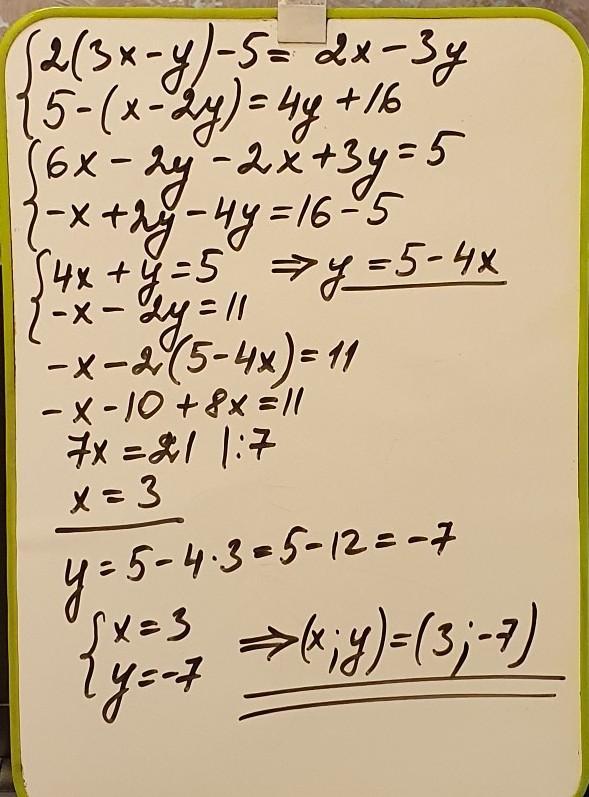 {2(3x-y)-5= 2x-3y
5-(x-2y)=4y+16
{6x-2y-2x+3y=5
-x+2y-4y=16-5
{4x+y=5 ⇒ y=5-4x
-x-2y=11
-x-2(5-4x)=11
-x-10+8x=11
7x=21 |:7
x=3
y=5-4·3=5-12=-7
{x=3 ⇒ (x;y)=(3;-7)
y=-7